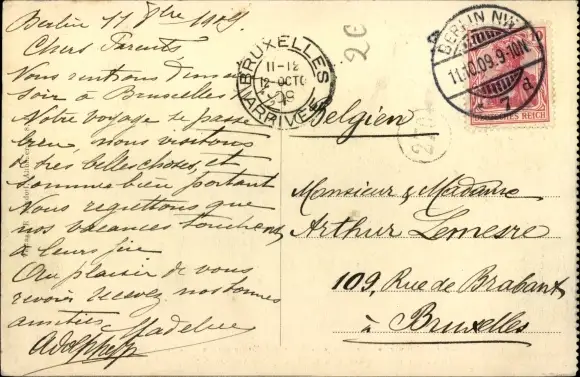 Berlin 11 8bre 1909.
Chers Parents
Nous rentrons Demain
soir à Bruxelles
Notre voyage se passe
bien, nous visitons
de très belles choses, et
sommes bien portant
Nous regrettons que
nos vacances touchent
à leurs fin
Au plaisir de vous
revoir recevez nos bonnes
amitiés
Adolphe
BRUXELLES
11-12
12-OCTO
09
(ARRIVEE)
BERLIN NW
11.10.09.9-10N.
* 7 d
10
DEUTSCHES REICH
Belgien
Monsieur & Madame
Arthur Lemesre
109, Rue de Brabant
à Bruxelles